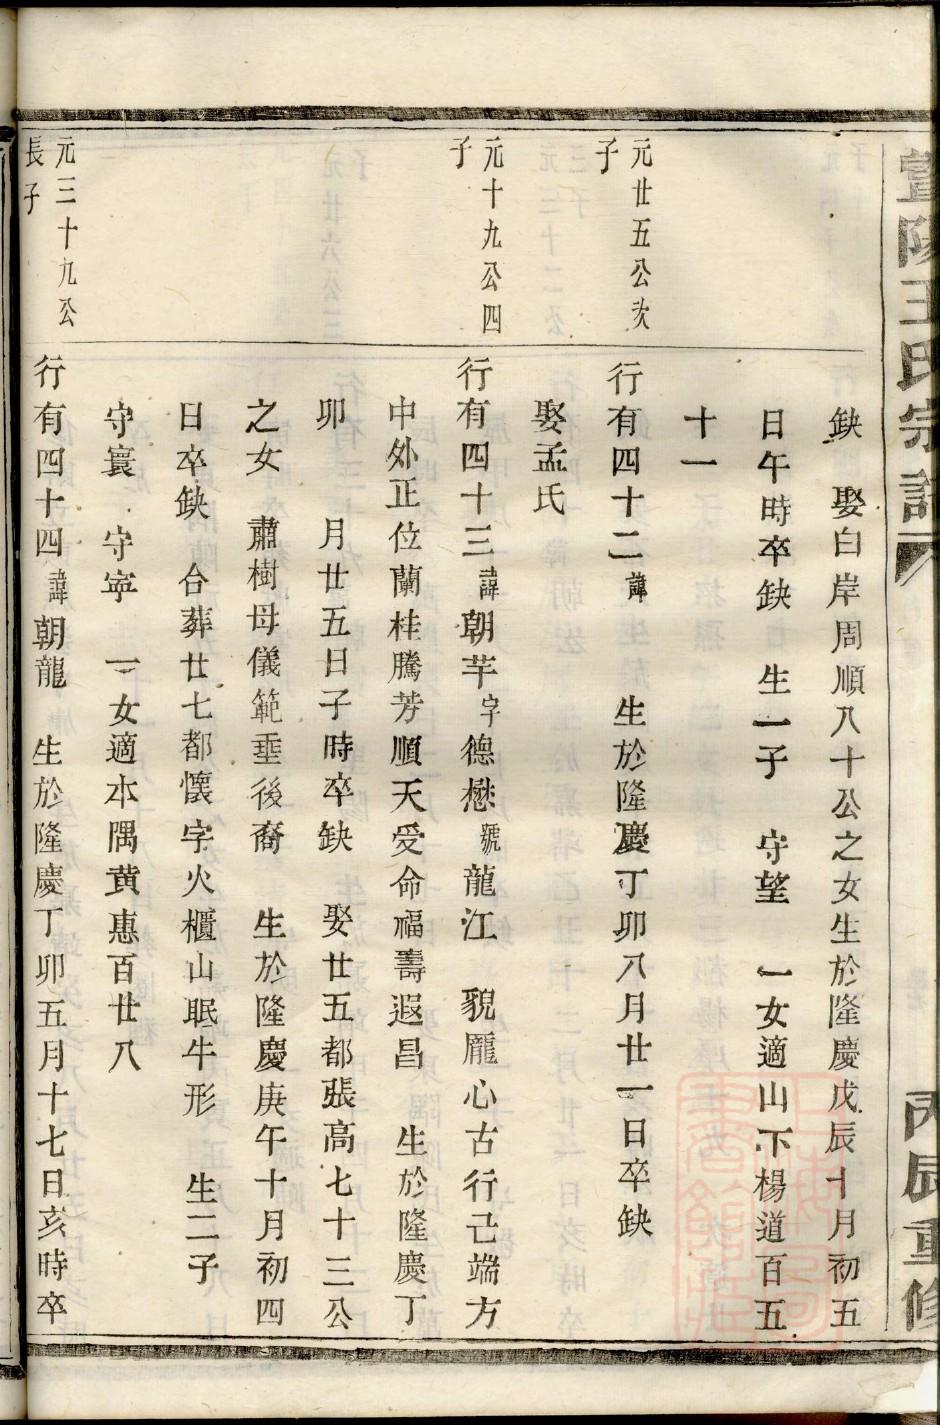 暨陽王氏宗譜
丙辰重修
缺　娶白岸周順八十公之女生於隆慶戊辰十月初五
日午時卒缺　生一子　守望　一女適山下楊道百五
十一
元廿五公次
子
行有四十二諱　　生於隆慶丁卯八月廿一日卒缺
娶孟氏
元十九公四
子
行有四十三諱朝芉字德懋號龍江　貌龐心古行己端方
中外正位蘭桂騰芳順天受命福壽遐昌　生於隆慶丁
卯　月廿五日子時卒缺　娶廿五都張高七十三公
之女　肅樹母儀範垂後裔　生於隆慶庚午十月初四
日卒缺　合葬廿七都懷字火櫃山眠牛形　生二子
守寰　守寧　一女適本隅黄惠百廿八
元三十九公
長子
行有四十四諱朝龍　生於隆慶丁卯五月十七日亥時卒